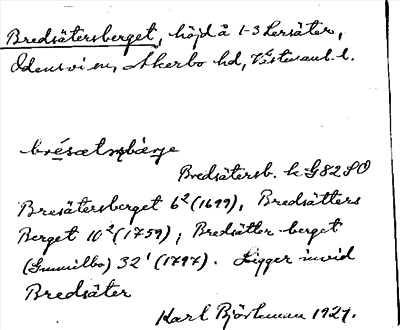 Bredsätersberget, höjd å 1-3 Lersäter,
Odensvi sn, Åkerbo hd, Västmanl. l.
brésætn̥bærje
Bredsätersb. k G82 SO
Bresätersberget 6² (1699), Bredsätters
Berget 10² (1759); Bredsätter berget
(Gunnilbo) 32¹ (1797). Ligger invid
Bredsäter
Karl Björkman 1927.